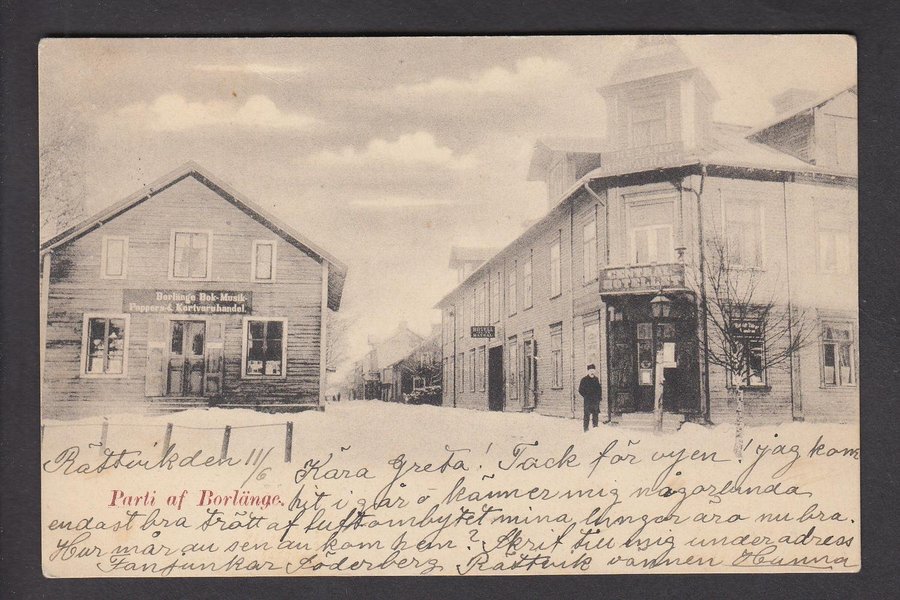 Borlänge Bok-Musik-
Pappers-& Kortvaruhandel.
HOTELL
Rättvik den 11/6
Kära Greta! Tack för vyen! jag kom
Parti af Borlänge.
hit i går o känner mig någorlunda
endast bra trött af luftombytet mina lungor äro nu bra.
Hur mår du sen du kom hem? Skrif till mig under adress
Fanjunkar Söderberg Rättvik vännen Hanna